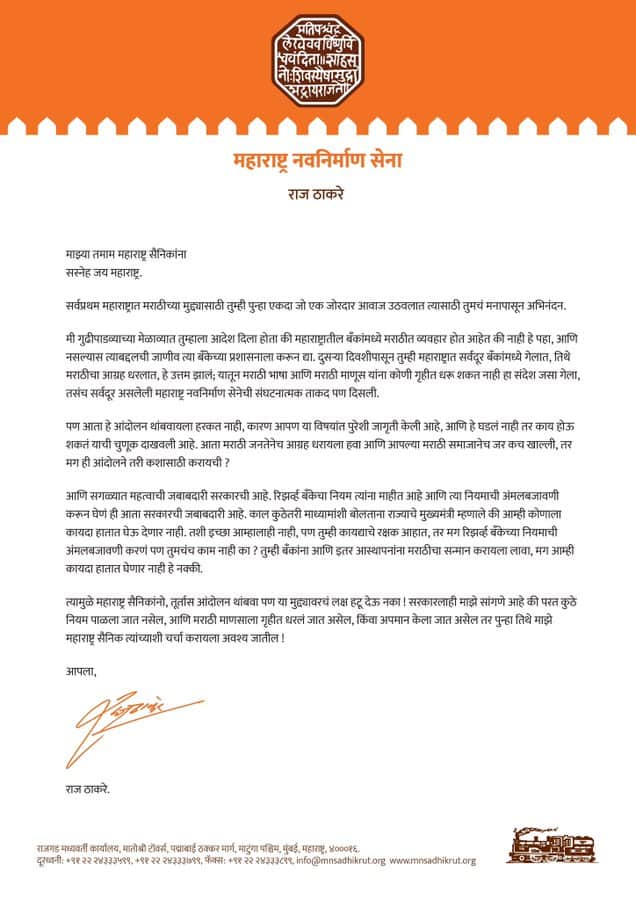 प्रतिपच्चंद्र
लेखेव वर्धिष्णुर्वि
श्ववंदिता॥ शाहसू
नोः शिवस्यैषा मुद्रा
भद्राय राजते
महाराष्ट्र नवनिर्माण सेना
राज ठाकरे
माझ्या तमाम महाराष्ट्र सैनिकांना
सस्नेह जय महाराष्ट्र.
सर्वप्रथम महाराष्ट्रात मराठीच्या मुद्द्यासाठी तुम्ही पुन्हा एकदा जो एक जोरदार आवाज उठवलात त्यासाठी तुमचं मनापासून अभिनंदन.
मी गुढीपाडव्याच्या मेळाव्यात तुम्हाला आदेश दिला होता की महाराष्ट्रातील बँकांमध्ये मराठीत व्यवहार होत आहेत की नाही हे पहा, आणि
नसल्यास त्याबद्दलची जाणीव त्या बँकेच्या प्रशासनाला करून द्या. दुसऱ्या दिवशीपासून तुम्ही महाराष्ट्रात सर्वदूर बँकांमध्ये गेलात, तिथे
मराठीचा आग्रह धरलात, हे उत्तम झालं; यातून मराठी भाषा आणि मराठी माणूस यांना कोणी गृहीत धरू शकत नाही हा संदेश जसा गेला,
तसंच सर्वदूर असलेली महाराष्ट्र नवनिर्माण सेनेची संघटनात्मक ताकद पण दिसली.
पण आता हे आंदोलन थांबवायला हरकत नाही, कारण आपण या विषयांत पुरेशी जागृती केली आहे, आणि हे घडलं नाही तर काय होऊ
शकतं याची चुणूक दाखवली आहे. आता मराठी जनतेनेच आग्रह धरायला हवा आणि आपल्या मराठी समाजानेच जर कच खाल्ली, तर
मग ही आंदोलने तरी कशासाठी करायची ?
आणि सगळ्यात महत्वाची जबाबदारी सरकारची आहे. रिझर्व्ह बँकेचा नियम त्यांना माहीत आहे आणि त्या नियमाची अंमलबजावणी
करून घेणं ही आता सरकारची जबाबदारी आहे. काल कुठेतरी माध्यमांशी बोलताना राज्याचे मुख्यमंत्री म्हणाले की आम्ही कोणाला
कायदा हातात घेऊ देणार नाही. तशी इच्छा आम्हालाही नाही, पण तुम्ही कायद्याचे रक्षक आहात, तर मग रिझर्व्ह बँकेच्या नियमाची
अंमलबजावणी करणं पण तुमचंच काम नाही का ? तुम्ही बँकांना आणि इतर आस्थापनांना मराठीचा सन्मान करायला लावा, मग आम्ही
कायदा हातात घेणार नाही हे नक्की.
त्यामुळे महाराष्ट्र सैनिकांनो, तूर्तास आंदोलन थांबवा पण या मुद्द्यावरचं लक्ष हटू देऊ नका ! सरकारलाही माझे सांगणे आहे की परत कुठे
नियम पाळला जात नसेल, आणि मराठी माणसाला गृहीत धरलं जात असेल, किंवा अपमान केला जात असेल तर पुन्हा तिथे माझे
महाराष्ट्र सैनिक त्यांच्याशी चर्चा करायला अवश्य जातील !
आपला,
राज ठाकरे.
राजगड मध्यवर्ती कार्यालय, मातोश्री टॉवर्स, पद्माबाई ठक्कर मार्ग, माटुंगा पश्चिम, मुंबई, महाराष्ट्र, ४०००१६.
दूरध्वनी: +९१ २२ २४३३३५९९, +९१ २२ २४३३३७९९, फॅक्स: +९१ २२ २४३३३८९९, info@mnsadhikrut.org www.mnsadhikrut.org